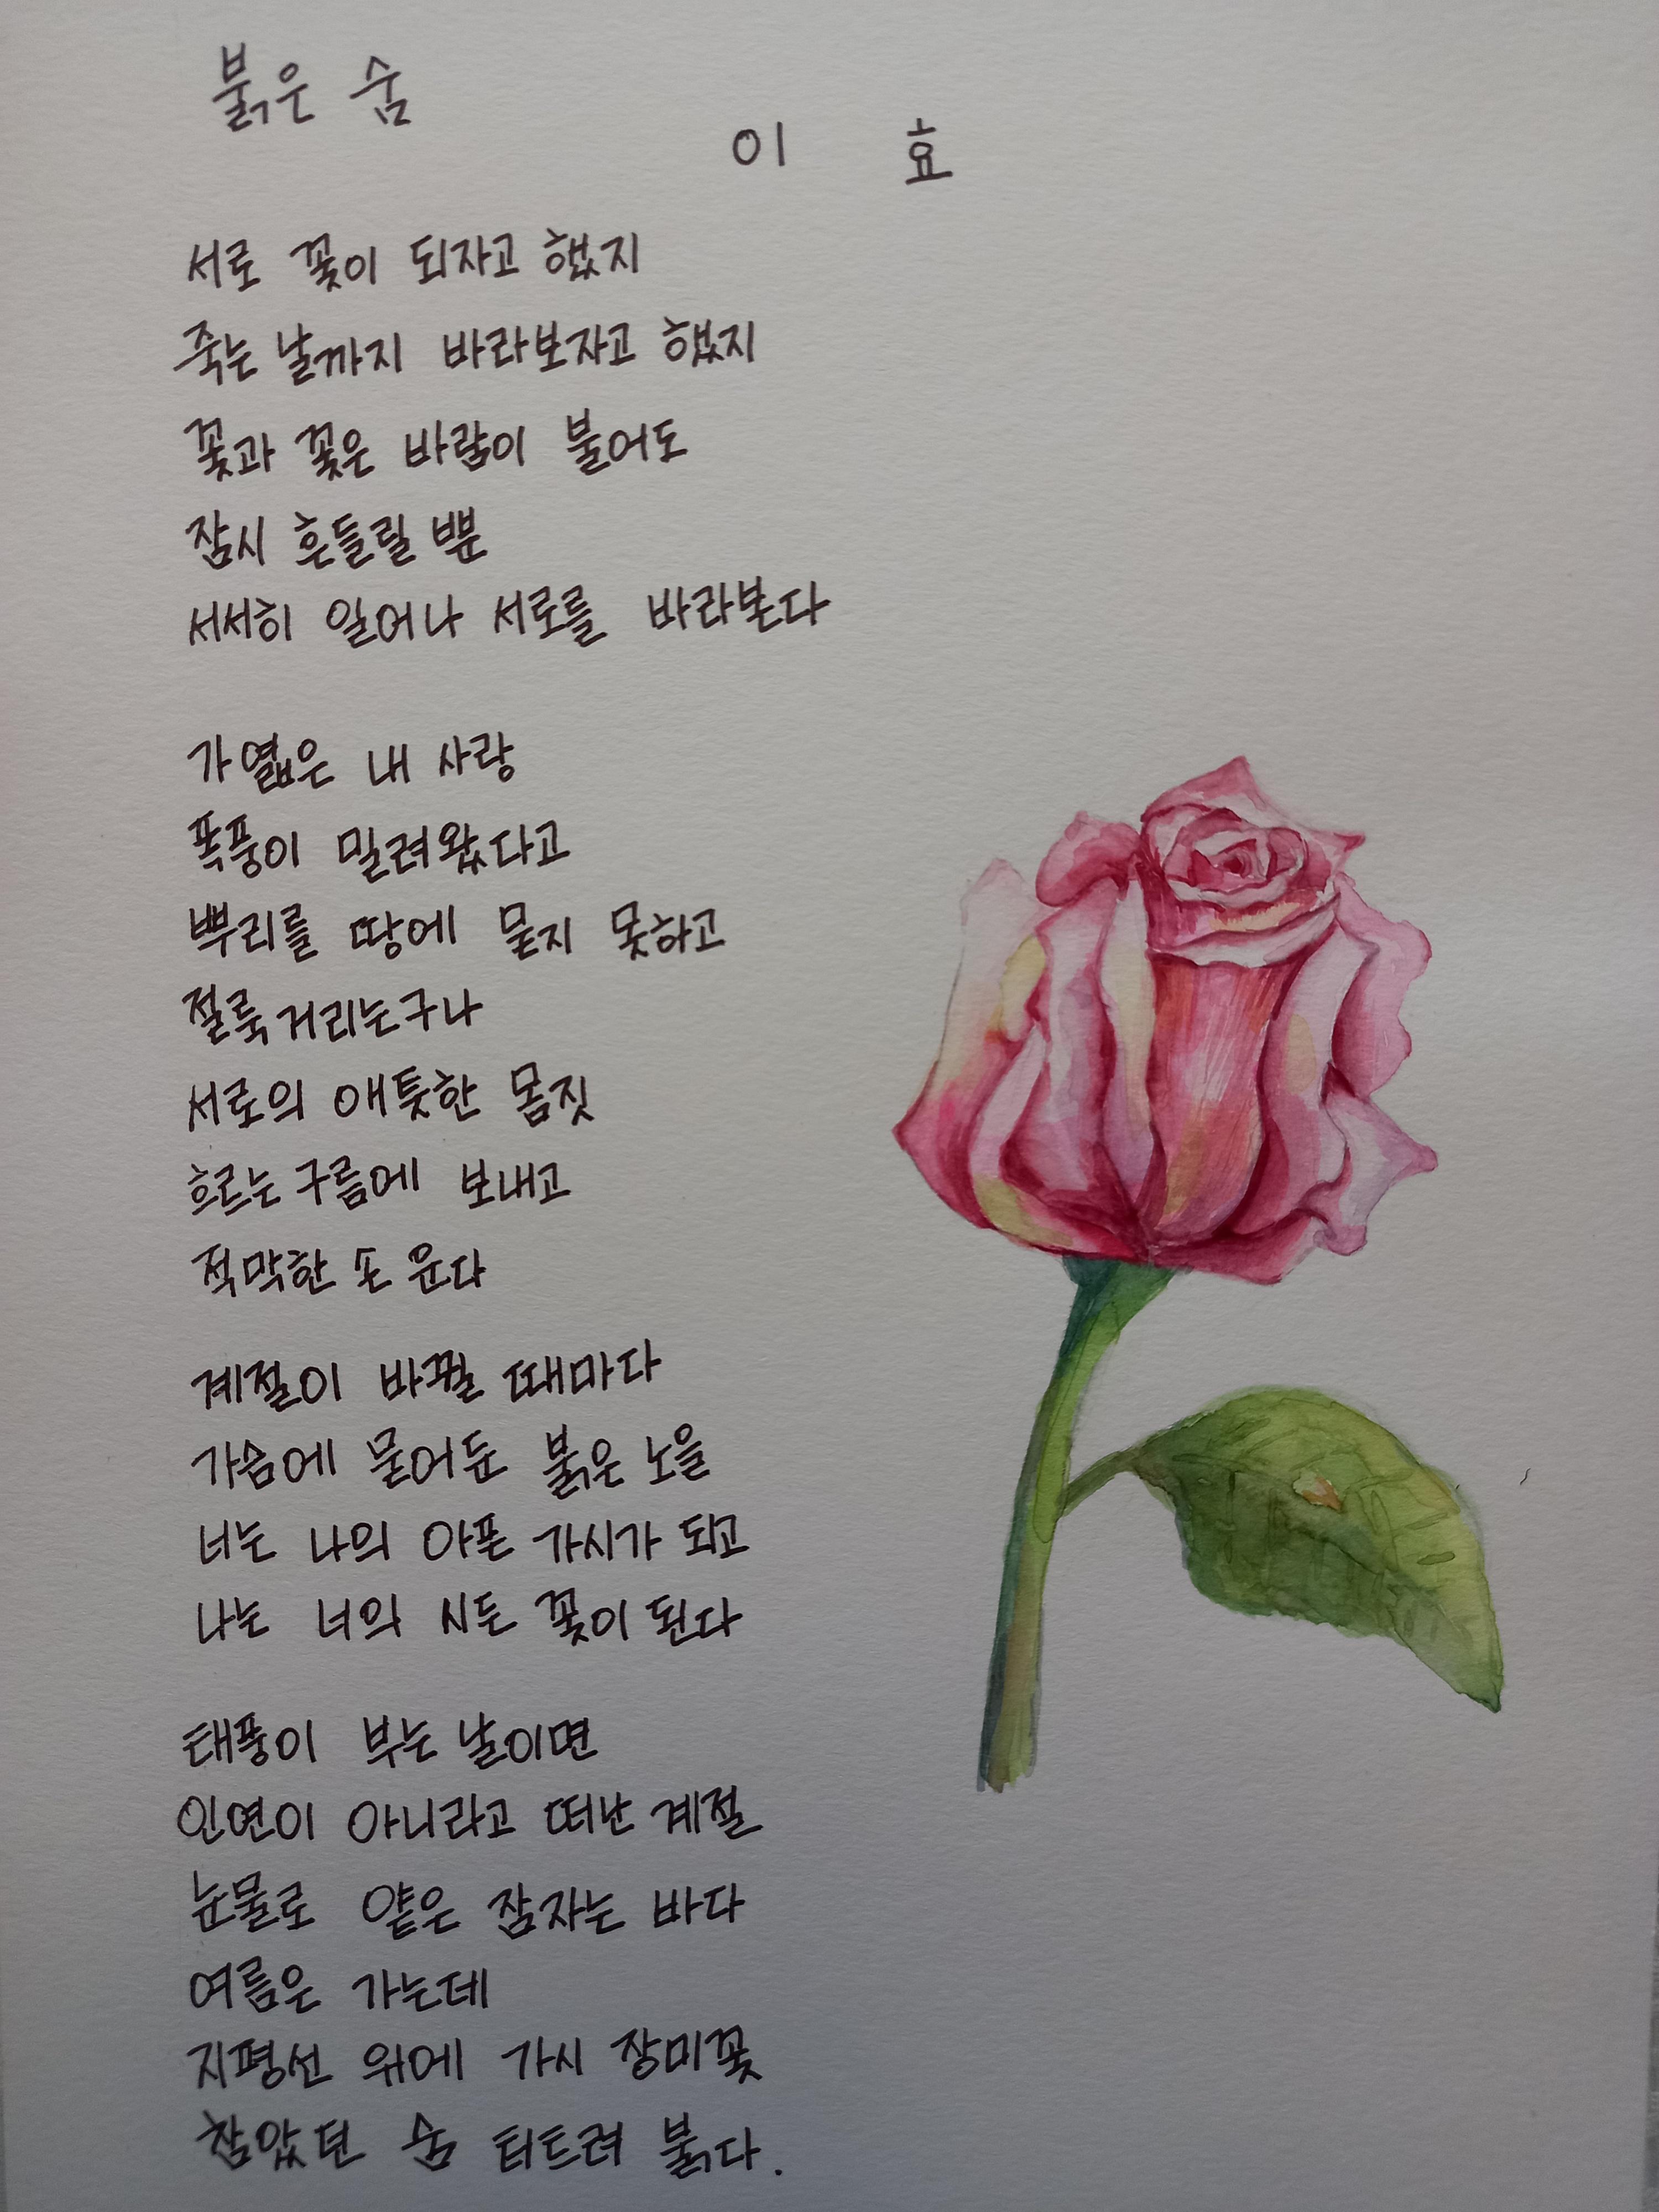 붉은 숨
이 효
서로 꽃이 되자고 했지
죽는 날까지 바라보자고 했지
꽃과 꽃은 바람이 불어도
잠시 흔들릴 뿐
서서히 일어나 서로를 바라본다
가엷은 내 사랑
폭풍이 밀려왔다고
뿌리를 땅에 묻지 못하고
절룩거리는구나
서로의 애틋한 몸짓
흐르는 구름에 보내고
적막한 손 운다
계절이 바뀔 때마다
가슴에 묻어둔 붉은 노을
너는 나의 아픈 가시가 되고
나는 너의 시든 꽃이 된다
태풍이 부는 날이면
인연이 아니라고 떠난 계절
눈물로 얕은 잠자는 바다
여름은 가는데
지평선 위에 가시 장미꽃
참았던 숨 터트려 붉다.